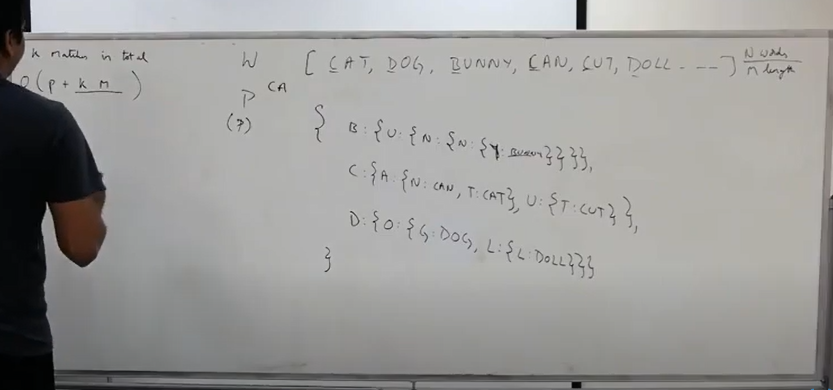 k matches in total
O(p + k m)
W [CAT, DOG, BUNNY, CAN, CUT, DOLL - - - -] N words / m length
P CA
(P)
{
B:{U:{N:{N:{Y:BUNNY}}}},
C:{A:{N:CAN, T:CAT}, U:{T:CUT}},
D:{O:{G:DOG, L:{L:DOLL}}}
}